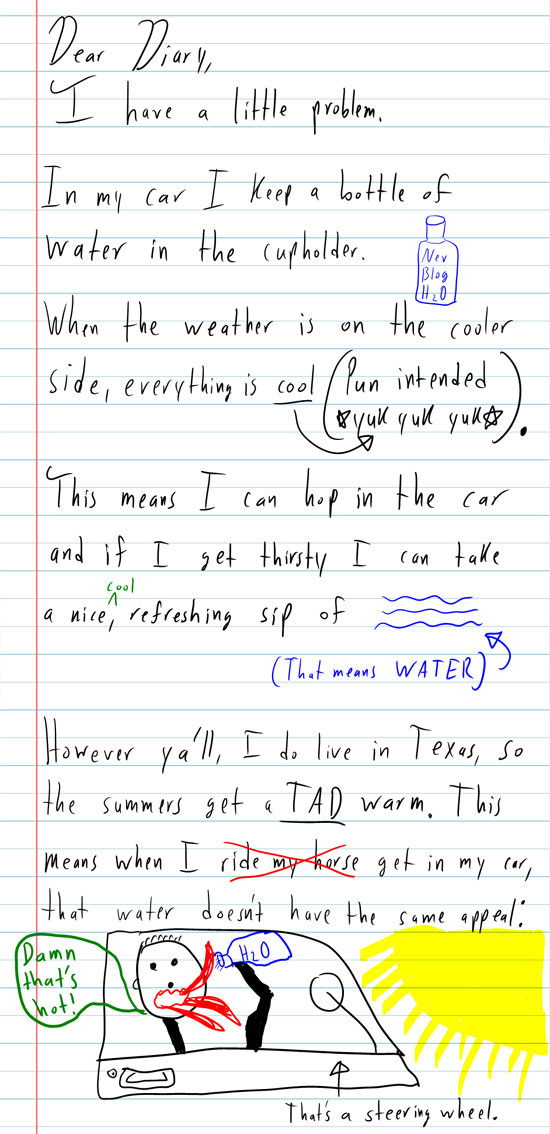 Dear Diary,
I have a little problem.
In my car I keep a bottle of
water in the cupholder.
Nev
Blog
H2O
When the weather is on the cooler
side, everything is cool (Pun intended
yuk yuk yuk).
This means I can hop in the car
and if I get thirsty I can take
cool
a nice, refreshing sip of
(That means WATER)
However ya'll, I do live in Texas, so
the summers get a TAD warm. This
means when I ride my horse get in my car,
that water doesn't have the same appeal:
Damn
that's
hot!
H2O
That's a steering wheel.